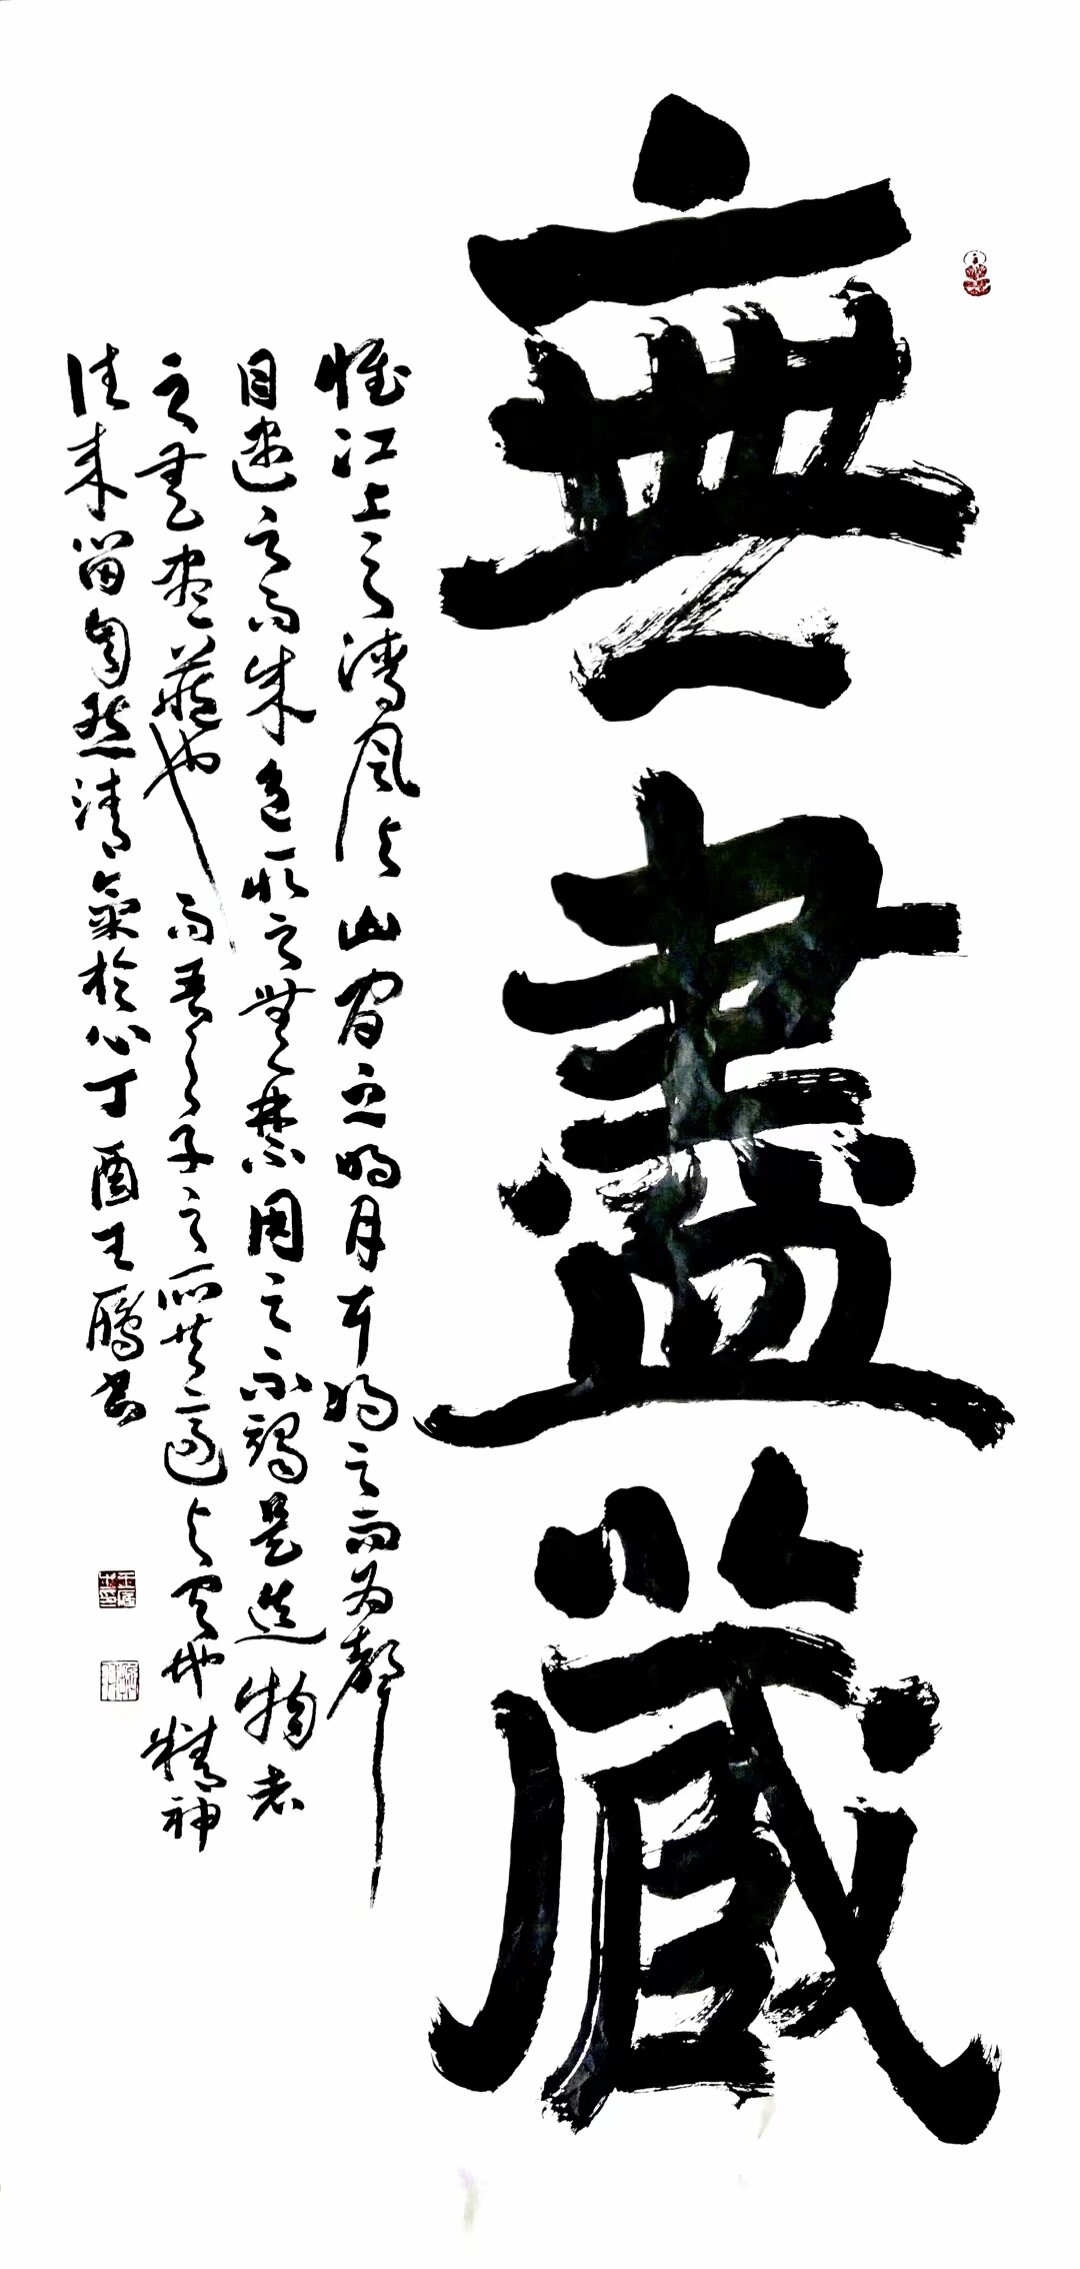 無盡藏
惟江上之清風与山間之明月耳得之而为聲
目遇之而成色取之無禁用之不竭是造物者
之無盡藏也而吾与子之所共適与天地精神
往來留自然清氣於心丁酉王書